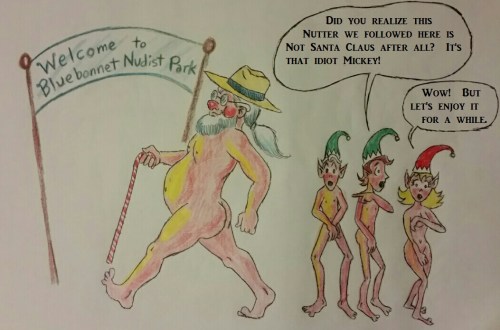 Welcome to
Bluebonnet Nudist Park
Did you realize this
Nutter we followed here is
Not Santa Claus after all? It's
that idiot Mickey!
Wow! But
let's enjoy it
for a while.